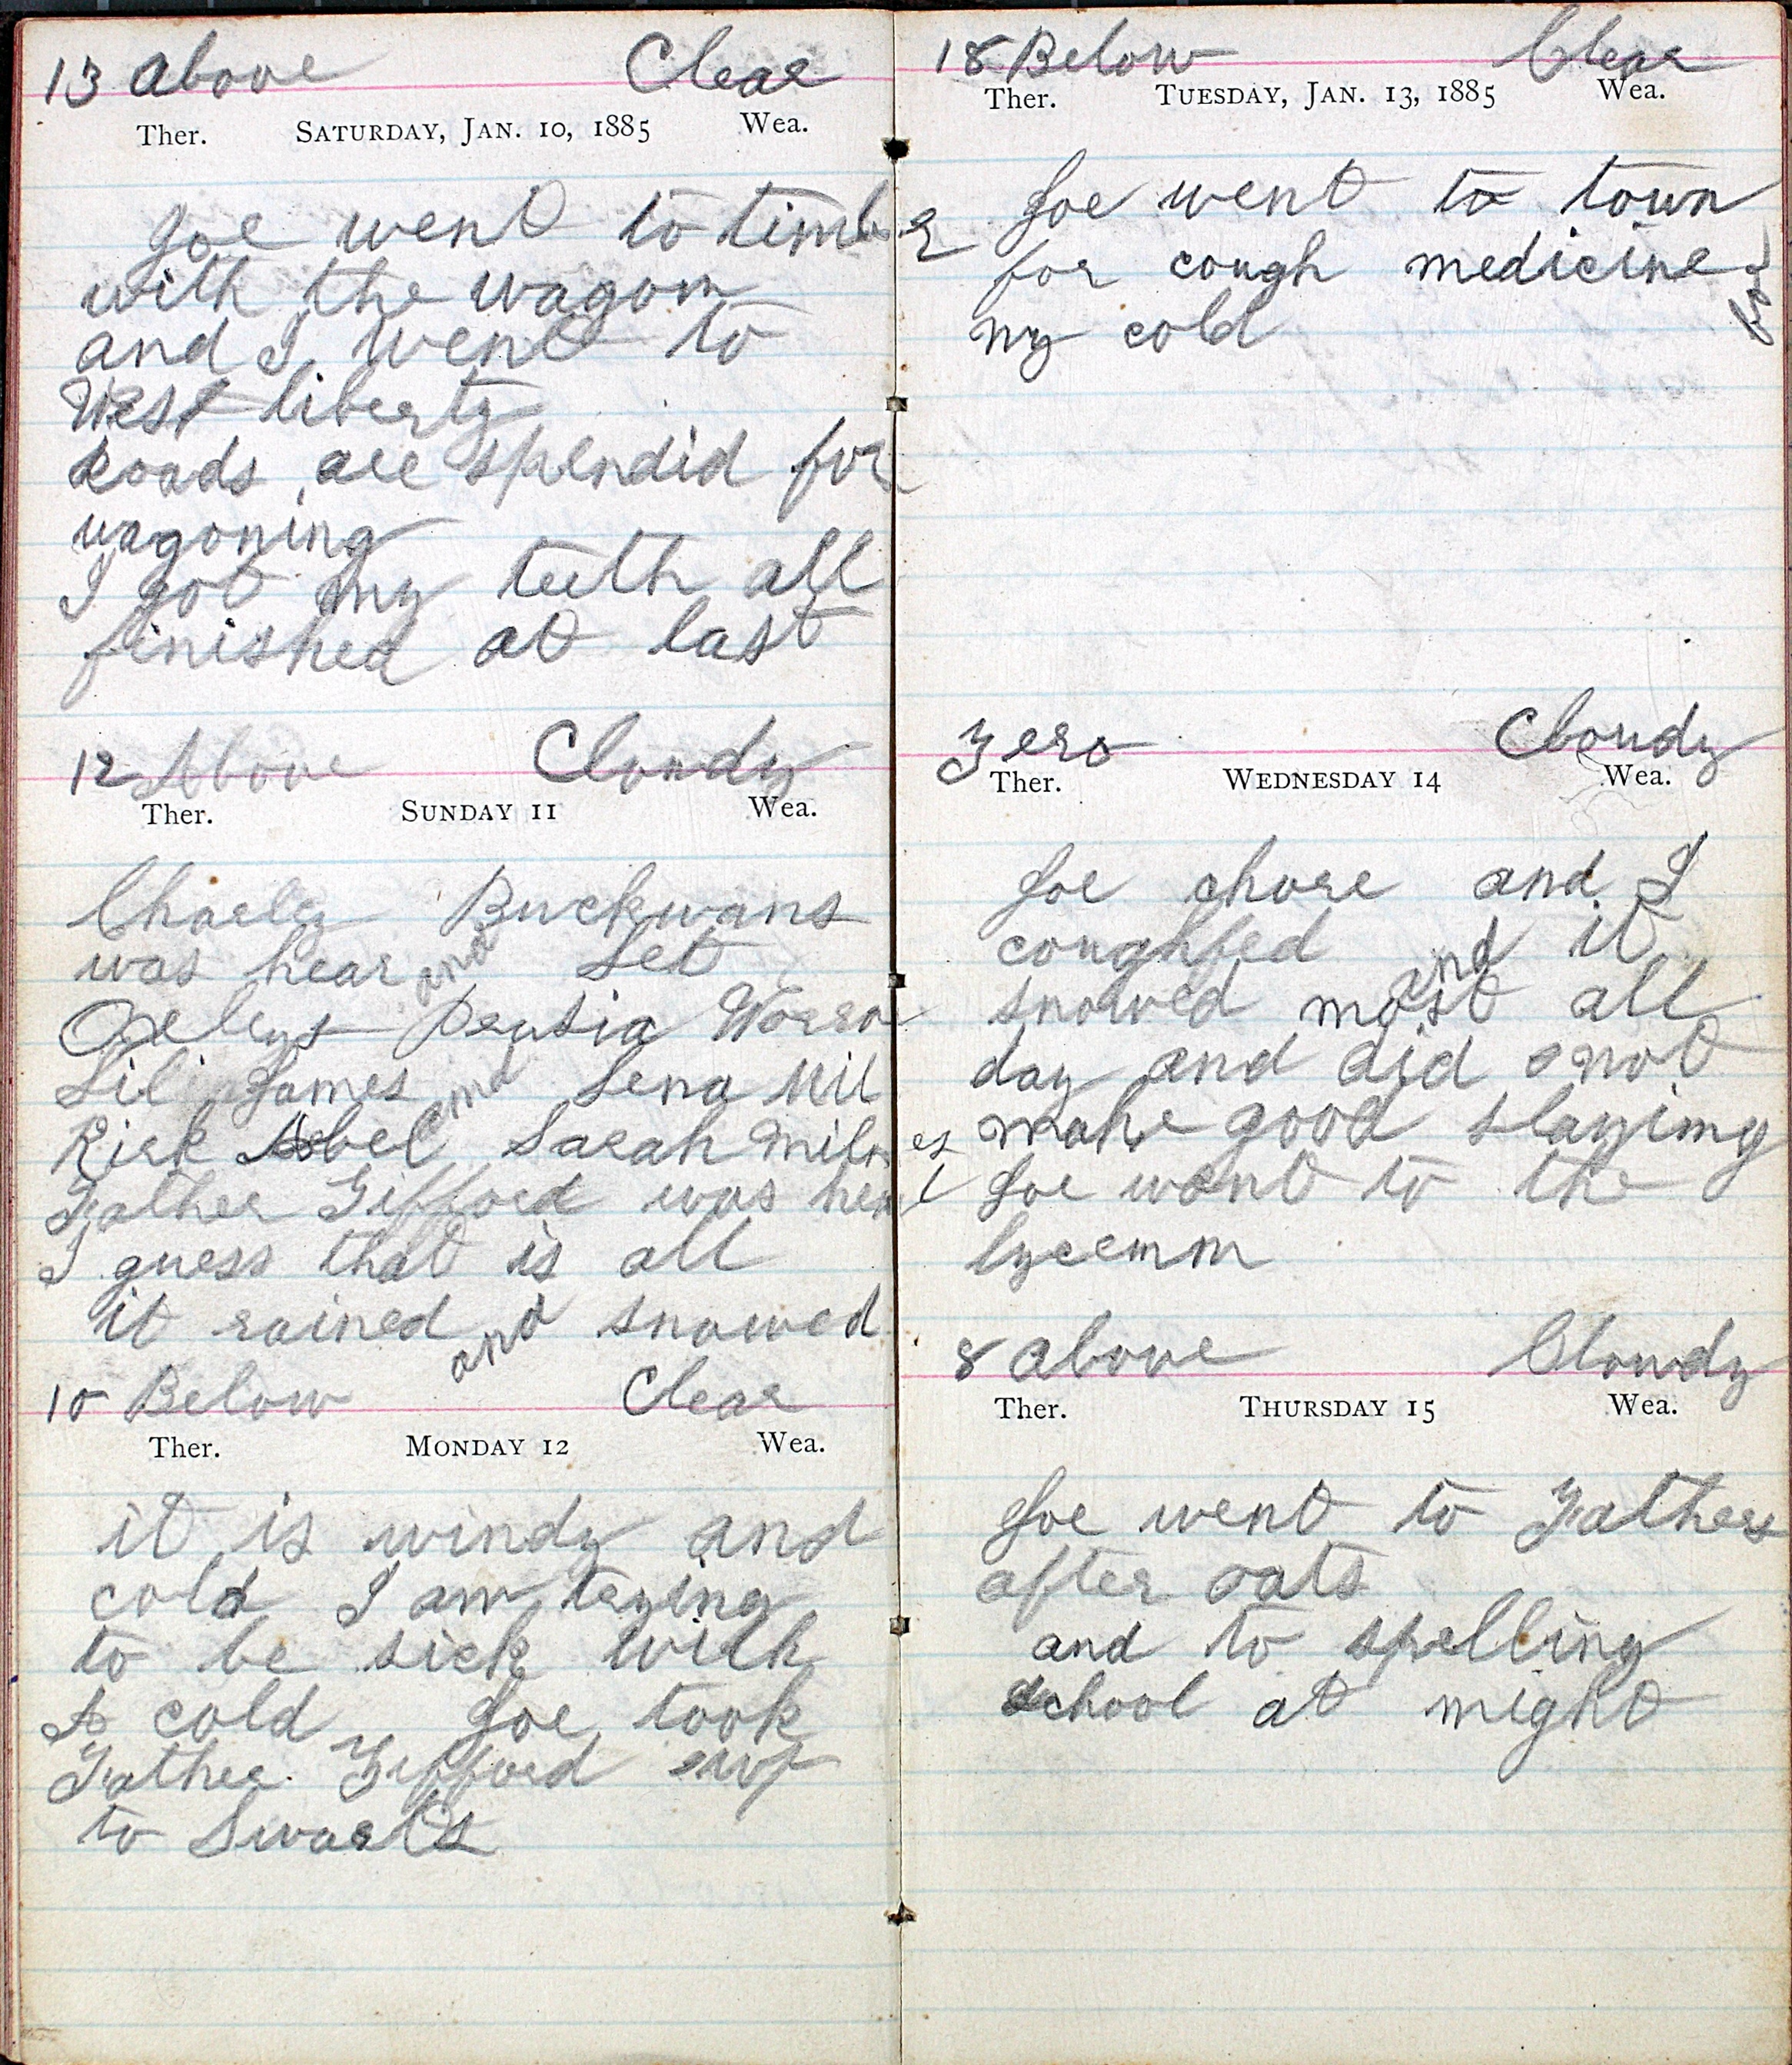 13 above Clear
Ther. SATURDAY, JAN. 10, 1885 Wea.
Joe went to timber
with the wagon
and I went to
West liberty
Roads are splendid for
wagoning
I got my teeth all
finished at last
12 Above Cloudy
Ther. SUNDAY 11 Wea.
Charley Buckwans
was hear and Let
Oxleys
Lili James and Lena Miles
Rick Abel Sarah
Father Gifford was hear
I guess that is all
it rained and snowed
10 Below Clear
Ther. MONDAY 12 Wea.
it is windy and
cold I am trying
to be sick with
A cold Joe took
Father Gifford up
to Swarts
18 Below Clear
Ther. TUESDAY, JAN. 13, 1885 Wea.
Joe went to town
for cough medicine for
my cold
Zero Cloudy
Ther. WEDNESDAY 14 Wea.
Joe chore and I
coughfed and it
snowed most all
day and did not
make good slaying
Joe went to the
lyceum
8 above Cloudy
Ther. THURSDAY 15 Wea.
Joe went to Fathers
after oats
and to spelling
school at night